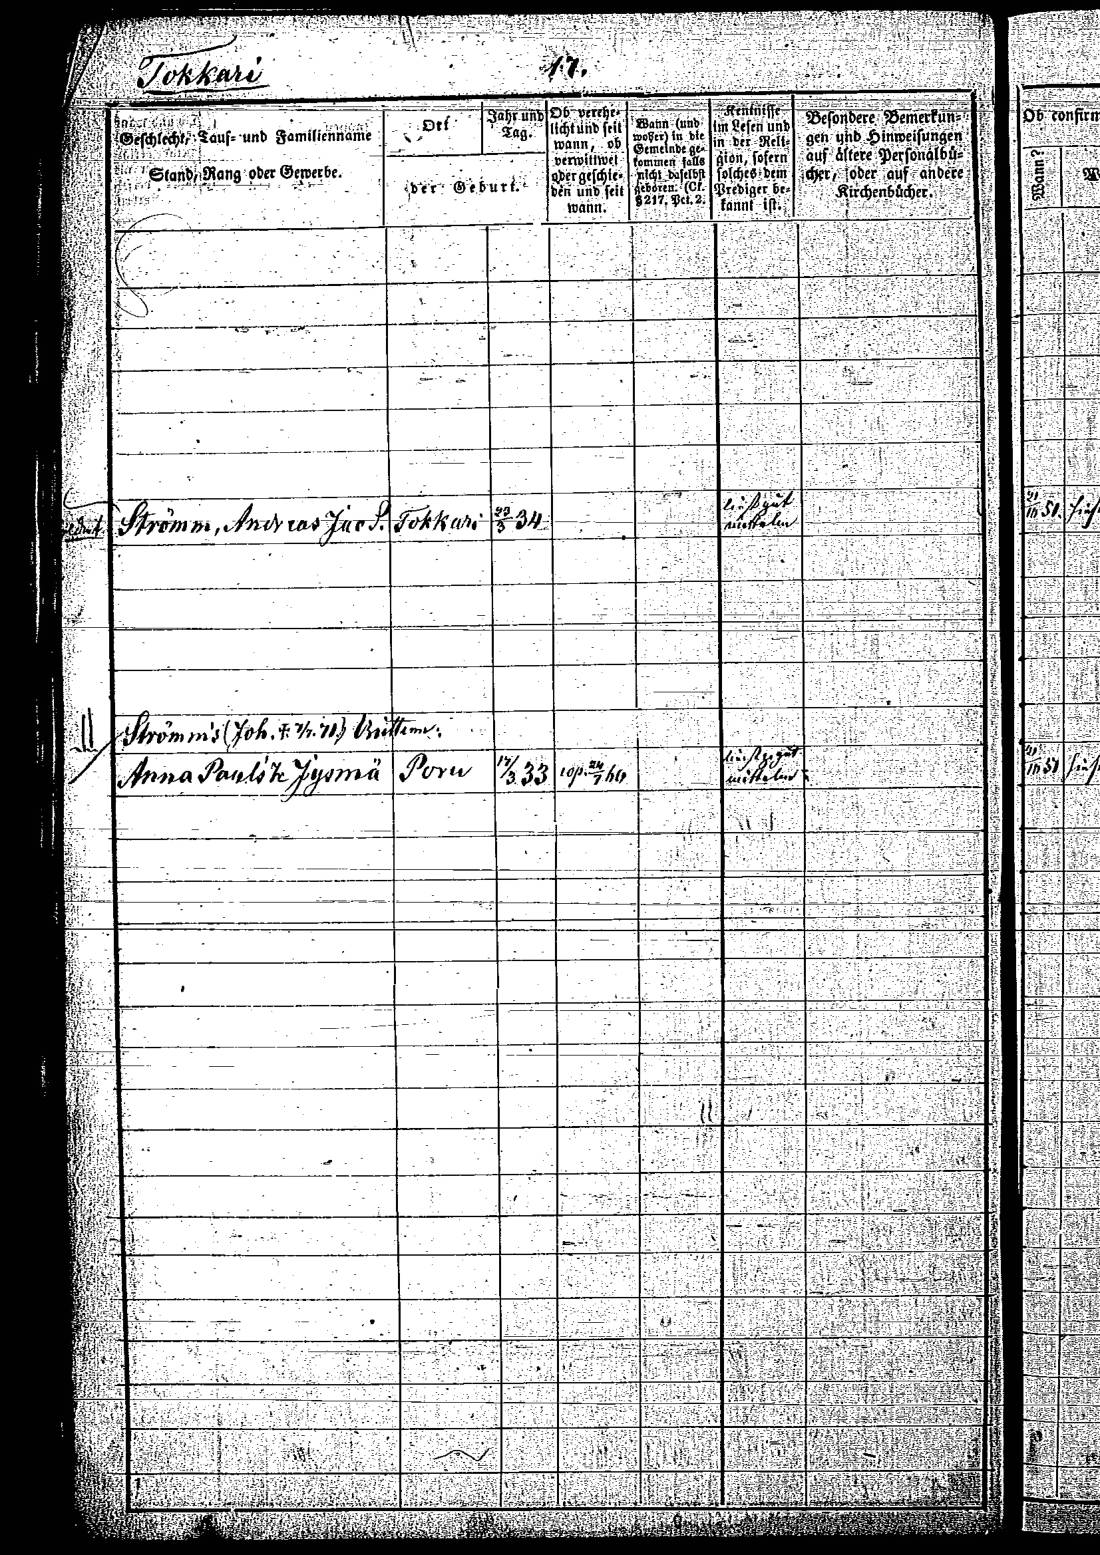 Tokkari
17.
Geschlecht, Tauf- und Familienname
Stand, Rang oder Gewerbe.
Ort
Jahr und
Tag.
der Geburt.
Ob verehe-
licht und seit
wann, ob
verwittwet
oder geschie-
den und seit
wann.
Wann (und
woher) in die
Gemeinde ge-
kommen falls
nicht daselbst
geboren. (Cf.
§ 217. Pct. 2.
Kentnisse
im Lesen und
in der Reli-
gion, sofern
solches dem
Prediger be-
kannt ist.
Besondere Bemerkun-
gen und Hinweisungen
auf ältere Personalbü-
cher, oder auf andere
Kirchenbücher.
Ob confirm
Wann?
Strömm, Andreas Jac S. Tokkari 23/3 34 ließt gut
mittelm 21/10 51.
Strömm's (Joh. † 71)
Anna Pauls T. Jysmä Poru 17/3 33 cop. 24/7 60 ließt gut
mittelm 21/10 51